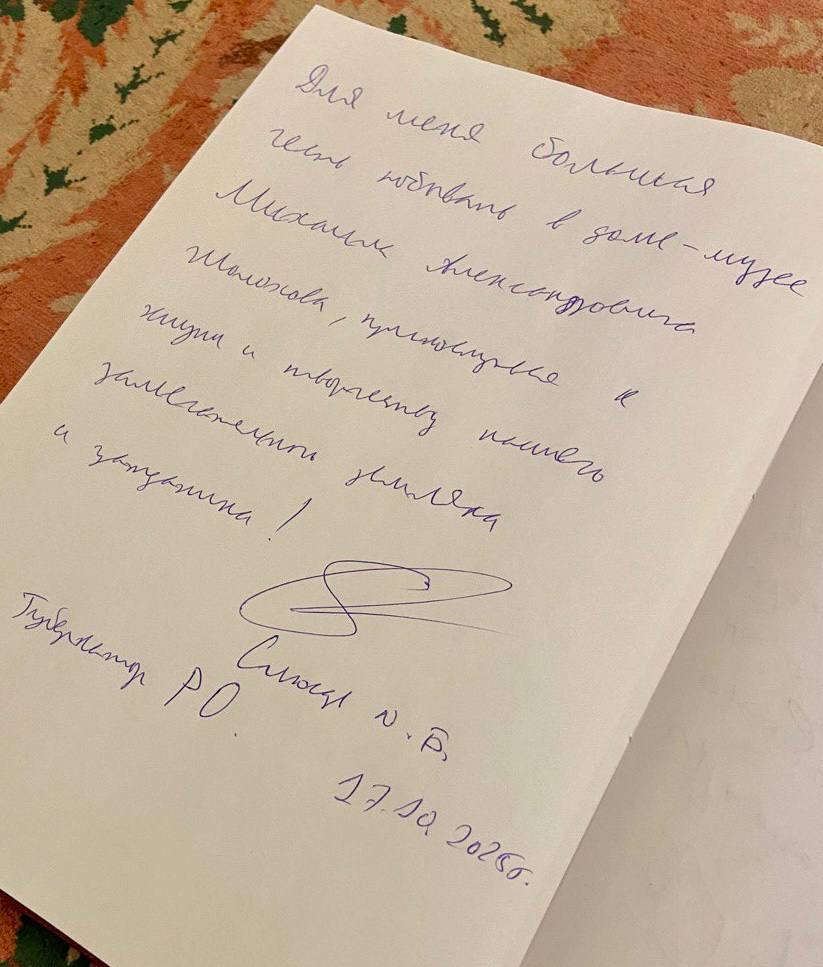 Для меня большая
честь побывать в доме-музее
Михаила Александровича
Шолохова, прикоснуться к
жизни и творчеству нашего
замечательного земляка
и гражданина!
Губернатор РО.
Слюсарь Ю.Б.
17.10.2025г.